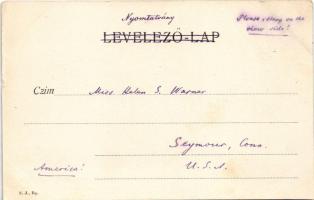 Nyomtatvány
LEVELEZŐ-LAP
Please, stamp on the
view side!
Czim Miss Helen S. Warner
Seymour, Conn.
America!
U.S.A.